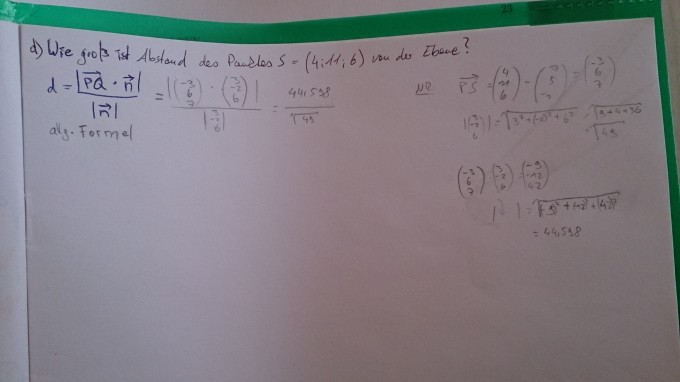 d) Wie groß ist Abstand des Punktes S = (4;11;6) von der Ebene?
d = |PQ · n| / |n| = |(-3 6 7) · (3 -2 6)| / |(3 -2 6)| = 44,598 / √49
allg. Formel
NR PS = (4 11 6) - ( 5 ) = (-3 6 7)
|(3 -2 6)| = √3² + (-2)² + 6² = √9+4+36
√49
(-3 6 7) (3 -2 6) = (-9 -12 42)
= 44,598